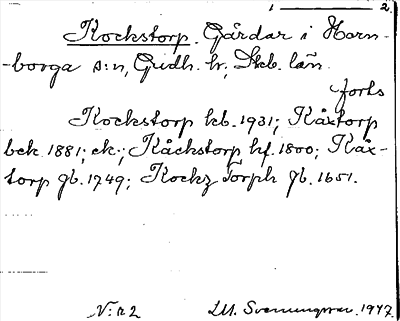 1 2
Kockstorp. Gårdar i Horn-
-borga s:n, Gudh. hr, Skb. län.
forts
Kockstorp kb. 1931; Kåxtorp
bek. 1881; ek.; Kåckstorp hf. 1800; Kåx-
torp gb. 1749; Kockz Torph gb. 1651.
N:r 2 1947